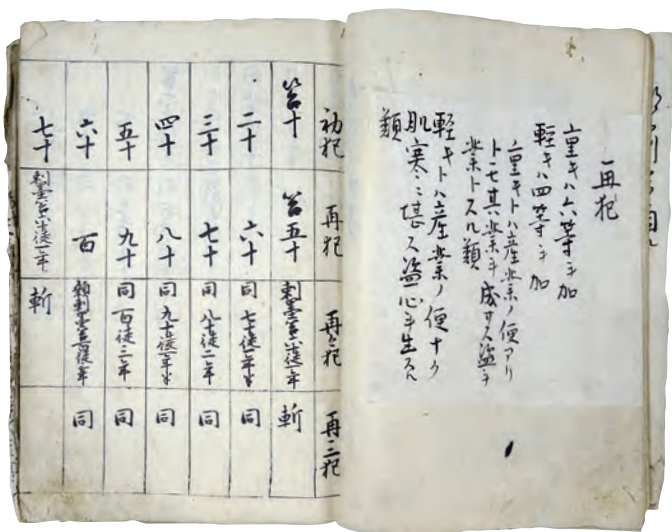 再犯
重キハ六等ヲ加
軽キハ四等ヲ加
重キトハ産業ノ便アリ
トモ其業ヲ成サス盗ヲ
業トスル類
軽キトハ産業ノ便ナク
肌寒ニ堪ス盗心ヲ生スル
類
初犯 再犯 再々犯 再三犯
笞十 笞五十 刺墨百徒一年 斬
二十 六十 同七十徒一年半 同
三十 七十 同八十徒二年 同
四十 八十 同九十徒二年半 同
五十 九十 同百徒三年 同
六十 百 同
七十 斬